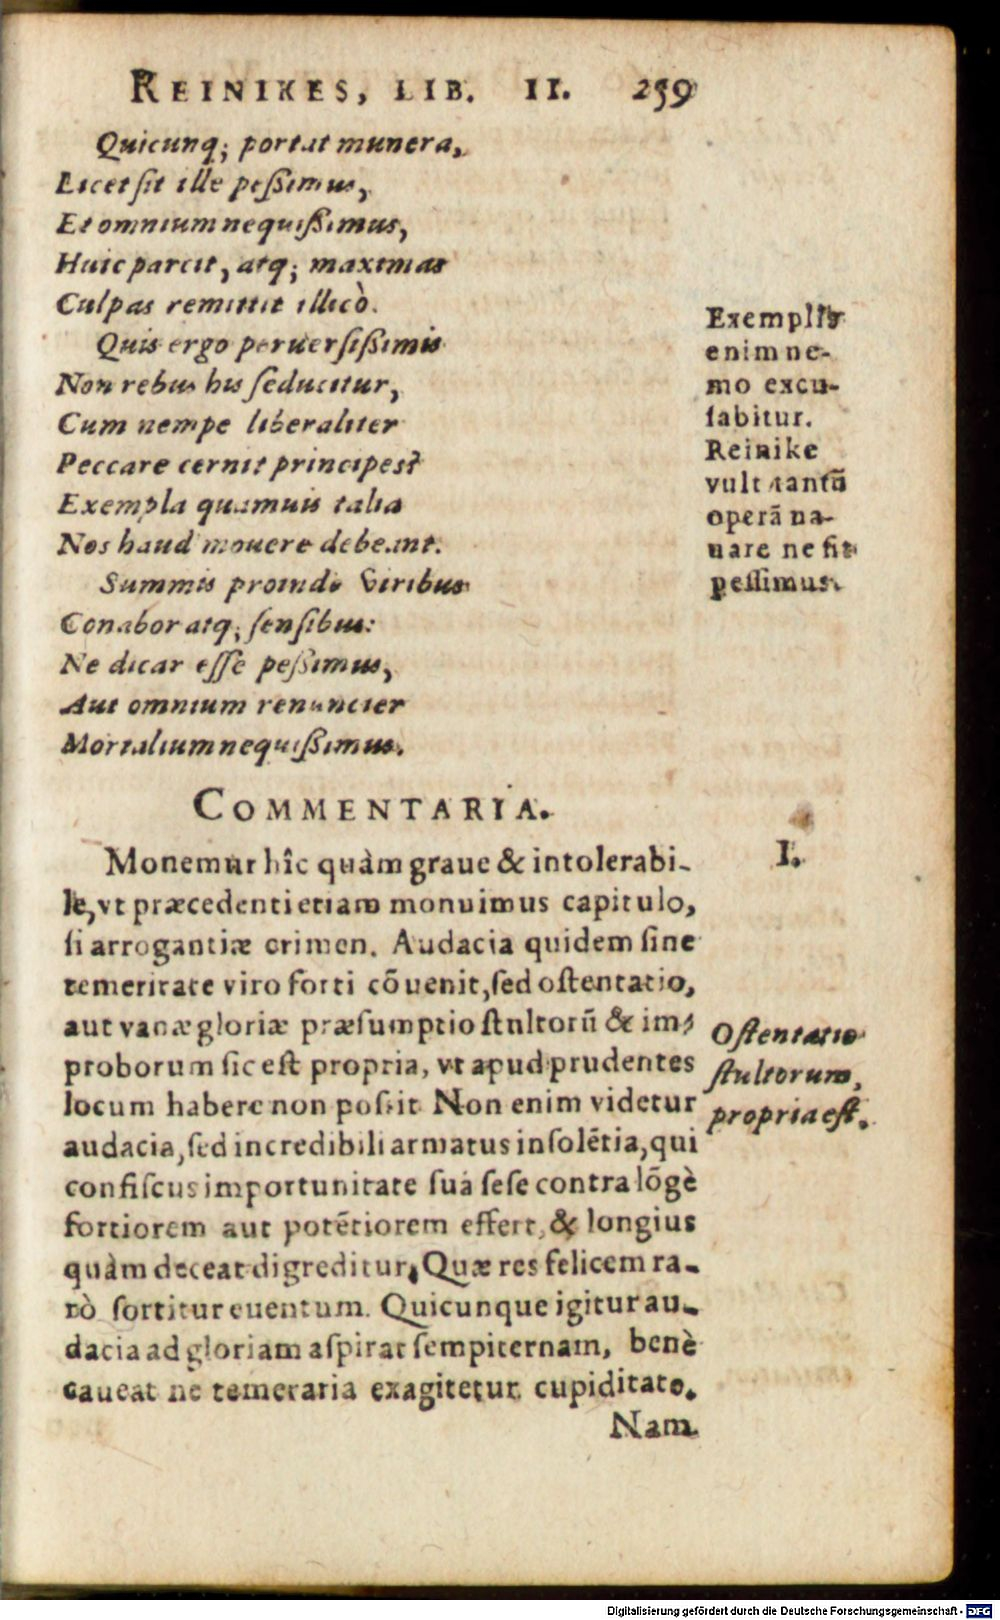 REINIKES, LIB. II. 259
Quicunq; portat munera,
Licet sit ille peſſimus,
Et omnium nequiſſimus,
Huic parcit, atq; maximas
Culpas remittit illicò.
Quis ergo peruerſiſſimis
Non rebus his ſeducitur,
Cum nempe liberaliter
Peccare cernit principes?
Exempla quamuis talia
Nos haud mouere debeant.
Summis proinde viribus
Conabor atq; ſenſibus:
Ne dicar eſſe peſſimus,
Aut omnium renuncier
Mortalium nequiſſimus.
Exemplis
enim ne-
mo excu-
ſabitur.
Reinike
vult tantũ
operã na-
uare ne ſit
peſſimus.
COMMENTARIA.
Monemur hîc quàm graue & intolerabi-
le, vt præcedenti etiam monuimus capitulo,
ſi arrogantiæ crimen. Audacia quidem ſine
temeritate viro forti cõuenit, ſed oſtentatio,
aut vanæ gloriæ præſumptio ſtultorũ & im-
proborum ſic eſt propria, vt apud prudentes
locum habere non poſsit. Non enim videtur
audacia, ſed incredibili armatus inſolẽtia, qui
confiſcus importunitate ſua ſeſe contra lõgè
fortiorem aut potẽtiorem effert, & longius
quàm deceat digreditur, Quæ res felicem ra-
rò ſortitur euentum. Quicunque igitur au-
dacia ad gloriam aſpirat ſempiternam, benè
caueat ne temeraria exagitetur cupiditate.
Nam
I.
Oſtentatio
ſtultorum,
propria eſt.
Digitalisierung gefördert durch die Deutsche Forschungsgemeinschaft - DFG